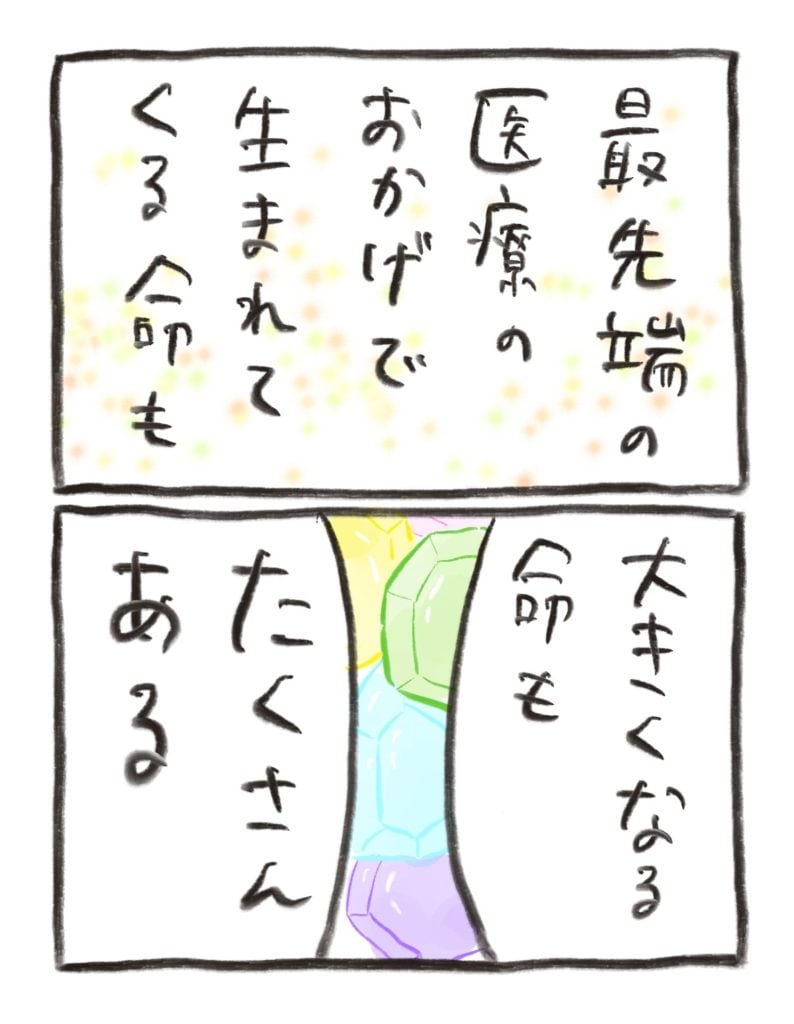 最先端の
医療の
おかげで
生まれて
くる命も
大きくなる
命も
たくさん
ある